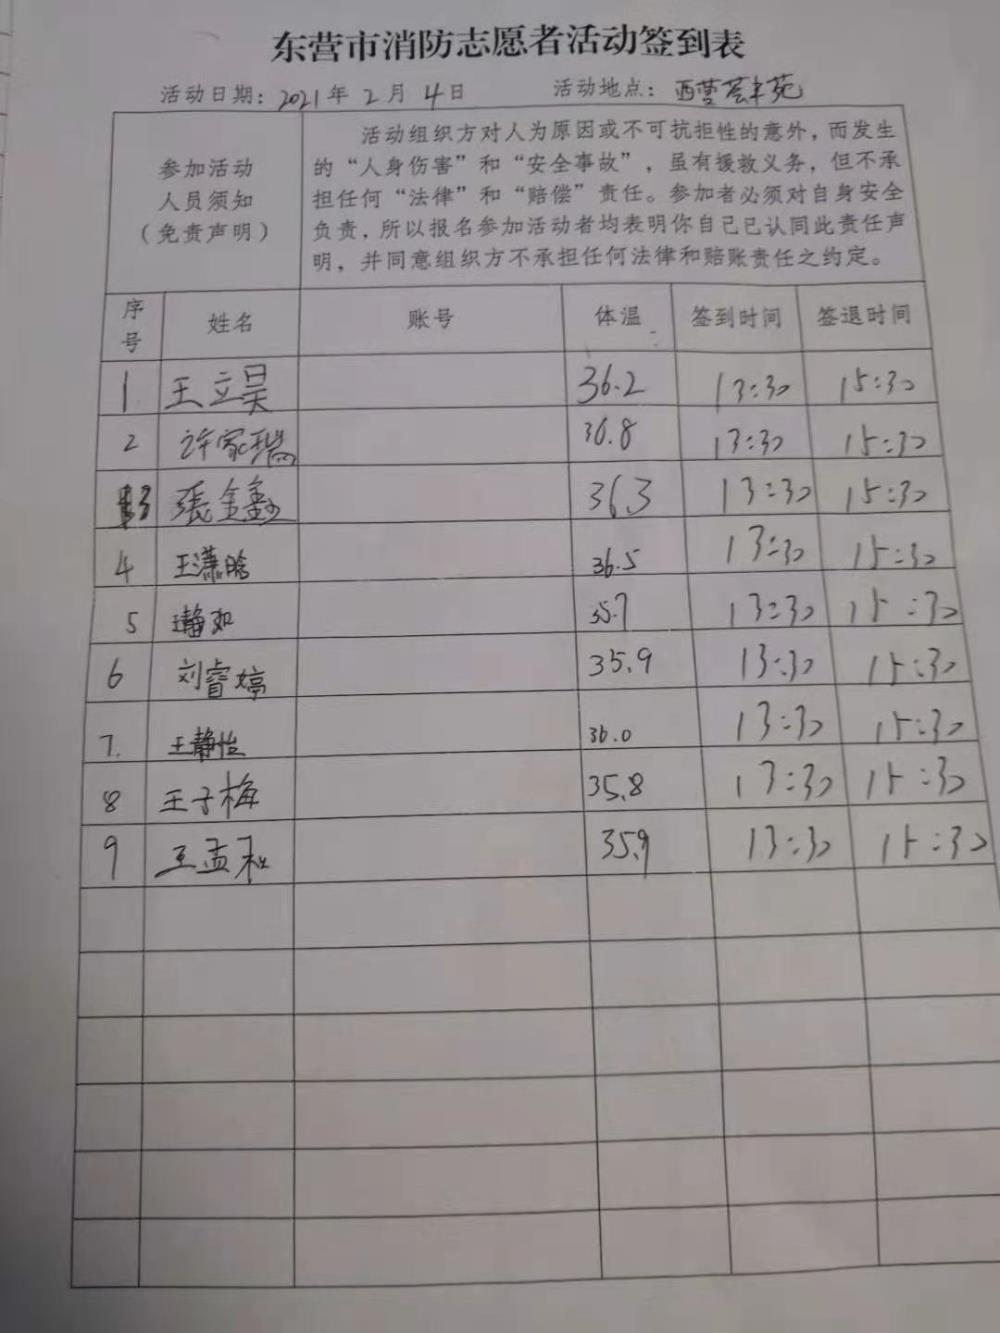 东营市消防志愿者活动签到表
活动日期：2021年2月4日 活动地点：西营荟丰苑
参加活动
人员须知
（免责声明）
活动组织方对人为原因或不可抗拒性的意外，而发生
的“人身伤害”和“安全事故”，虽有援救义务，但不承
担任何“法律”和“赔偿”责任。参加者必须对自身安全
负责，所以报名参加活动者均表明你自己已认同此责任声
明，并同意组织方不承担任何法律和赔账责任之约定。
序号 姓名 账号 体温 签到时间 签退时间
1 王立昊 36.2 13:30 15:30
2 许家瑞 36.8 13:30 15:30
3 張金鑫 36.3 13:30 15:30
4 王潇晗 36.5 13:30 15:30
5 静如 35.7 13:30 15:30
6 刘睿婷 35.9 13:30 15:30
7. 王静怡 36.0 13:30 15:30
8 王子梅 35.8 13:30 15:30
9 王孟秋 35.9 13:30 15:30